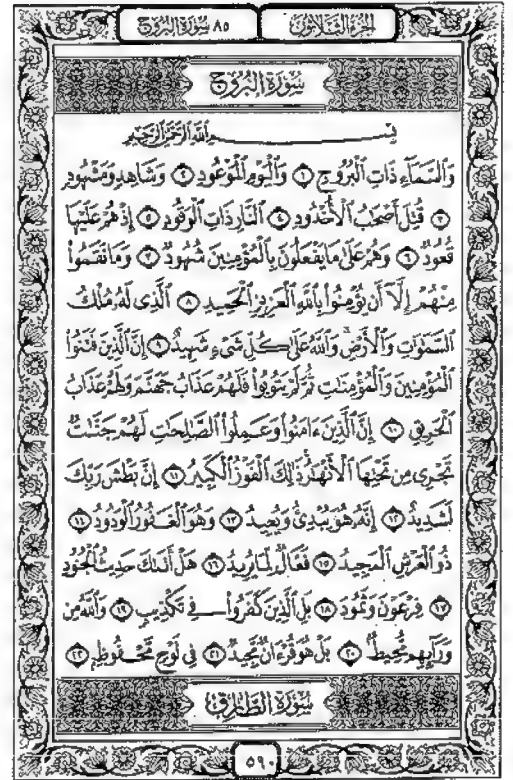 الجزء الثلاثون
٨٥ سورة البروج
سُورَةُ البُرُوجِ
بِسْمِ اللَّهِ الرَّحْمَٰنِ الرَّحِيمِ
وَالسَّمَآءِ ذَاتِ الْبُرُوجِ ١ وَالْيَوْمِ الْمَوْعُودِ ٢ وَشَاهِدٍ وَمَشْهُودٍ
٣ قُتِلَ أَصْحَٰبُ الْأُخْدُودِ ٤ النَّارِ ذَاتِ الْوَقُودِ ٥ إِذْ هُمْ عَلَيْهَا
قُعُودٌ ٦ وَهُمْ عَلَىٰ مَا يَفْعَلُونَ بِالْمُؤْمِنِينَ شُهُودٌ ٧ وَمَا نَقَمُوا۟
مِنْهُمْ إِلَّآ أَن يُؤْمِنُوا۟ بِاللَّهِ الْعَزِيزِ الْحَمِيدِ ٨ الَّذِى لَهُۥ مُلْكُ
السَّمَٰوَٰتِ وَالْأَرْضِ ۚ وَاللَّهُ عَلَىٰ كُلِّ شَىْءٍ شَهِيدٌ ٩ إِنَّ الَّذِينَ فَتَنُوا۟
الْمُؤْمِنِينَ وَالْمُؤْمِنَٰتِ ثُمَّ لَمْ يَتُوبُوا۟ فَلَهُمْ عَذَابُ جَهَنَّمَ وَلَهُمْ عَذَابُ
الْحَرِيقِ ١٠ إِنَّ الَّذِينَ ءَامَنُوا۟ وَعَمِلُوا۟ الصَّٰلِحَٰتِ لَهُمْ جَنَّٰتٌ
تَجْرِى مِن تَحْتِهَا الْأَنْهَٰرُ ۚ ذَٰلِكَ الْفَوْزُ الْكَبِيرُ ١١ إِنَّ بَطْشَ رَبِّكَ
لَشَدِيدٌ ١٢ إِنَّهُۥ هُوَ يُبْدِئُ وَيُعِيدُ ١٣ وَهُوَ الْغَفُورُ الْوَدُودُ ١٤
ذُو الْعَرْشِ الْمَجِيدُ ١٥ فَعَّالٌ لِّمَا يُرِيدُ ١٦ هَلْ أَتَىٰكَ حَدِيثُ الْجُنُودِ
١٧ فِرْعَوْنَ وَثَمُودَ ١٨ بَلِ الَّذِينَ كَفَرُوا۟ فِى تَكْذِيبٍ ١٩ وَاللَّهُ مِن
وَرَآئِهِم مُّحِيطٌۢ ٢٠ بَلْ هُوَ قُرْءَانٌ مَّجِيدٌ ٢١ فِى لَوْحٍ مَّحْفُوظٍۭ ٢٢
سُورَةُ الطَّارِقِ
٥٩٠